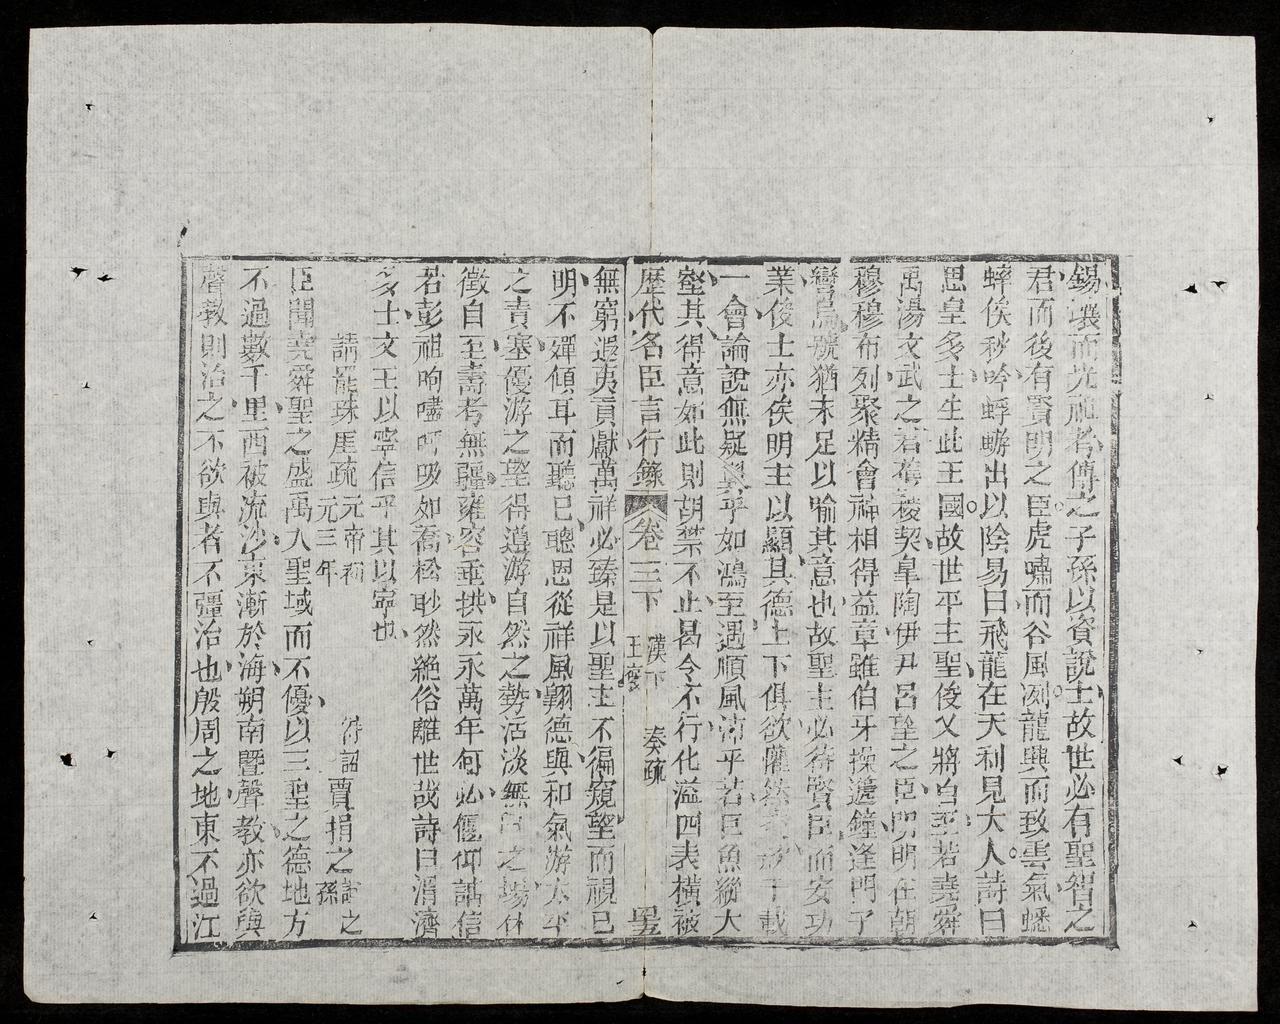 錫壤而光祖考傳之子孫以資說士故世必有聖智之
君而後有賢明之臣虎嘯而谷風冽龍興而致雲氣蟋
蟀俟秋吟蜉蝣出以陰易曰飛龍在天利見大人詩曰
思皇多士生此王國故世平主聖俊乂將自至若堯舜
禹湯文武之君獲稷契皐陶伊尹呂望之臣明明在朝
穆穆布列聚精會神相得益章雖伯牙操遞鐘逢門子
彎烏號猶未足以喻其意也故聖主必待賢臣而安功
業俊士亦俟明主以顯其德上下俱欲懽然交欣千載
一會論說無疑翼乎如鴻毛遇順風沛乎若巨魚縱大
壑其得意如此則胡禁不止曷令不行化溢四表橫被
歷代名臣言行錄 卷三下 漢下 王褒 奏疏 罣
無窮遐夷貢獻萬祥必臻是以聖主不徧窺望而視已
明不殫傾耳而聽已聰恩從祥風翱德與和氣游太平
之責塞優游之望得遵游自然之勢活淡無為之場休
徵自至壽考無疆雍容垂拱永永萬年何必偃仰詘信
若彭祖呴噓呼吸如喬松眇然絕俗離世哉詩曰濟濟
多士文王以寧信乎其以寧也
請罷珠厓疏 元帝初元三年 待詔賈捐之 誼之孫
臣聞堯舜聖之盛禹入聖域而不優以三聖之德地方
不過數千里西被流沙東漸於海朔南暨聲教亦欲與
聲教則治之不欲與者不彊治也殷周之地東不過江